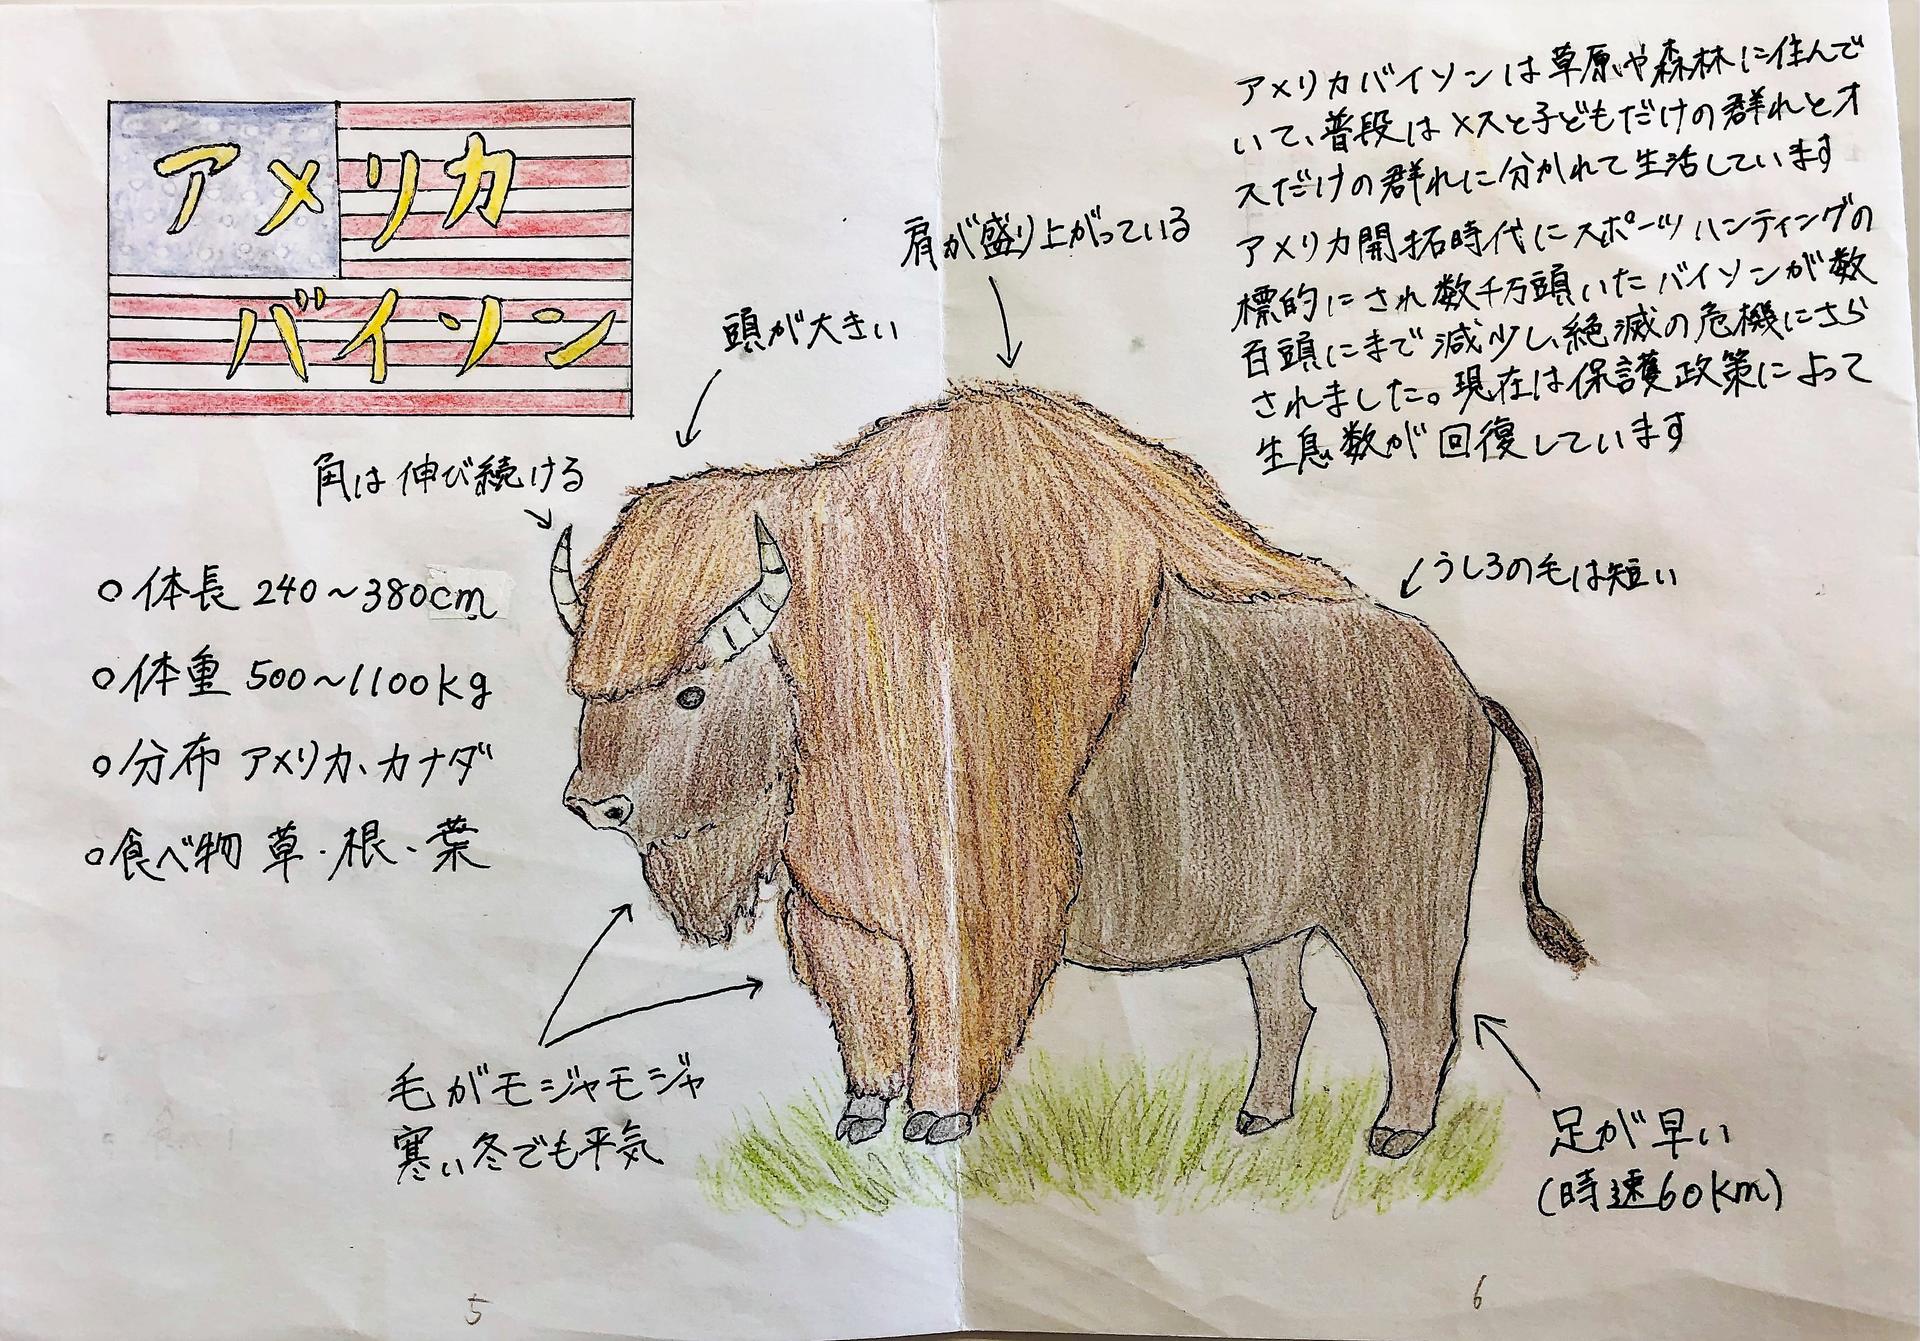 アメリカ
バイソン
アメリカバイソンは草原や森林に住んで
いて、普段はメスと子どもだけの群れとオ
スだけの群れに分かれて生活しています
アメリカ開拓時代にスポーツハンティングの
標的にされ数千万頭いたバイソンが数
百頭にまで減少し、絶滅の危機にさら
されました。現在は保護政策によって
生息数が回復しています
肩が盛り上がっている
頭が大きい
角は伸び続ける
うしろの毛は短い
○体長 240~380cm
○体重 500~1100kg
○分布 アメリカ、カナダ
○食べ物 草・根・葉
毛がモジャモジャ
寒い冬でも平気
足が早い
(時速60km)
5
6